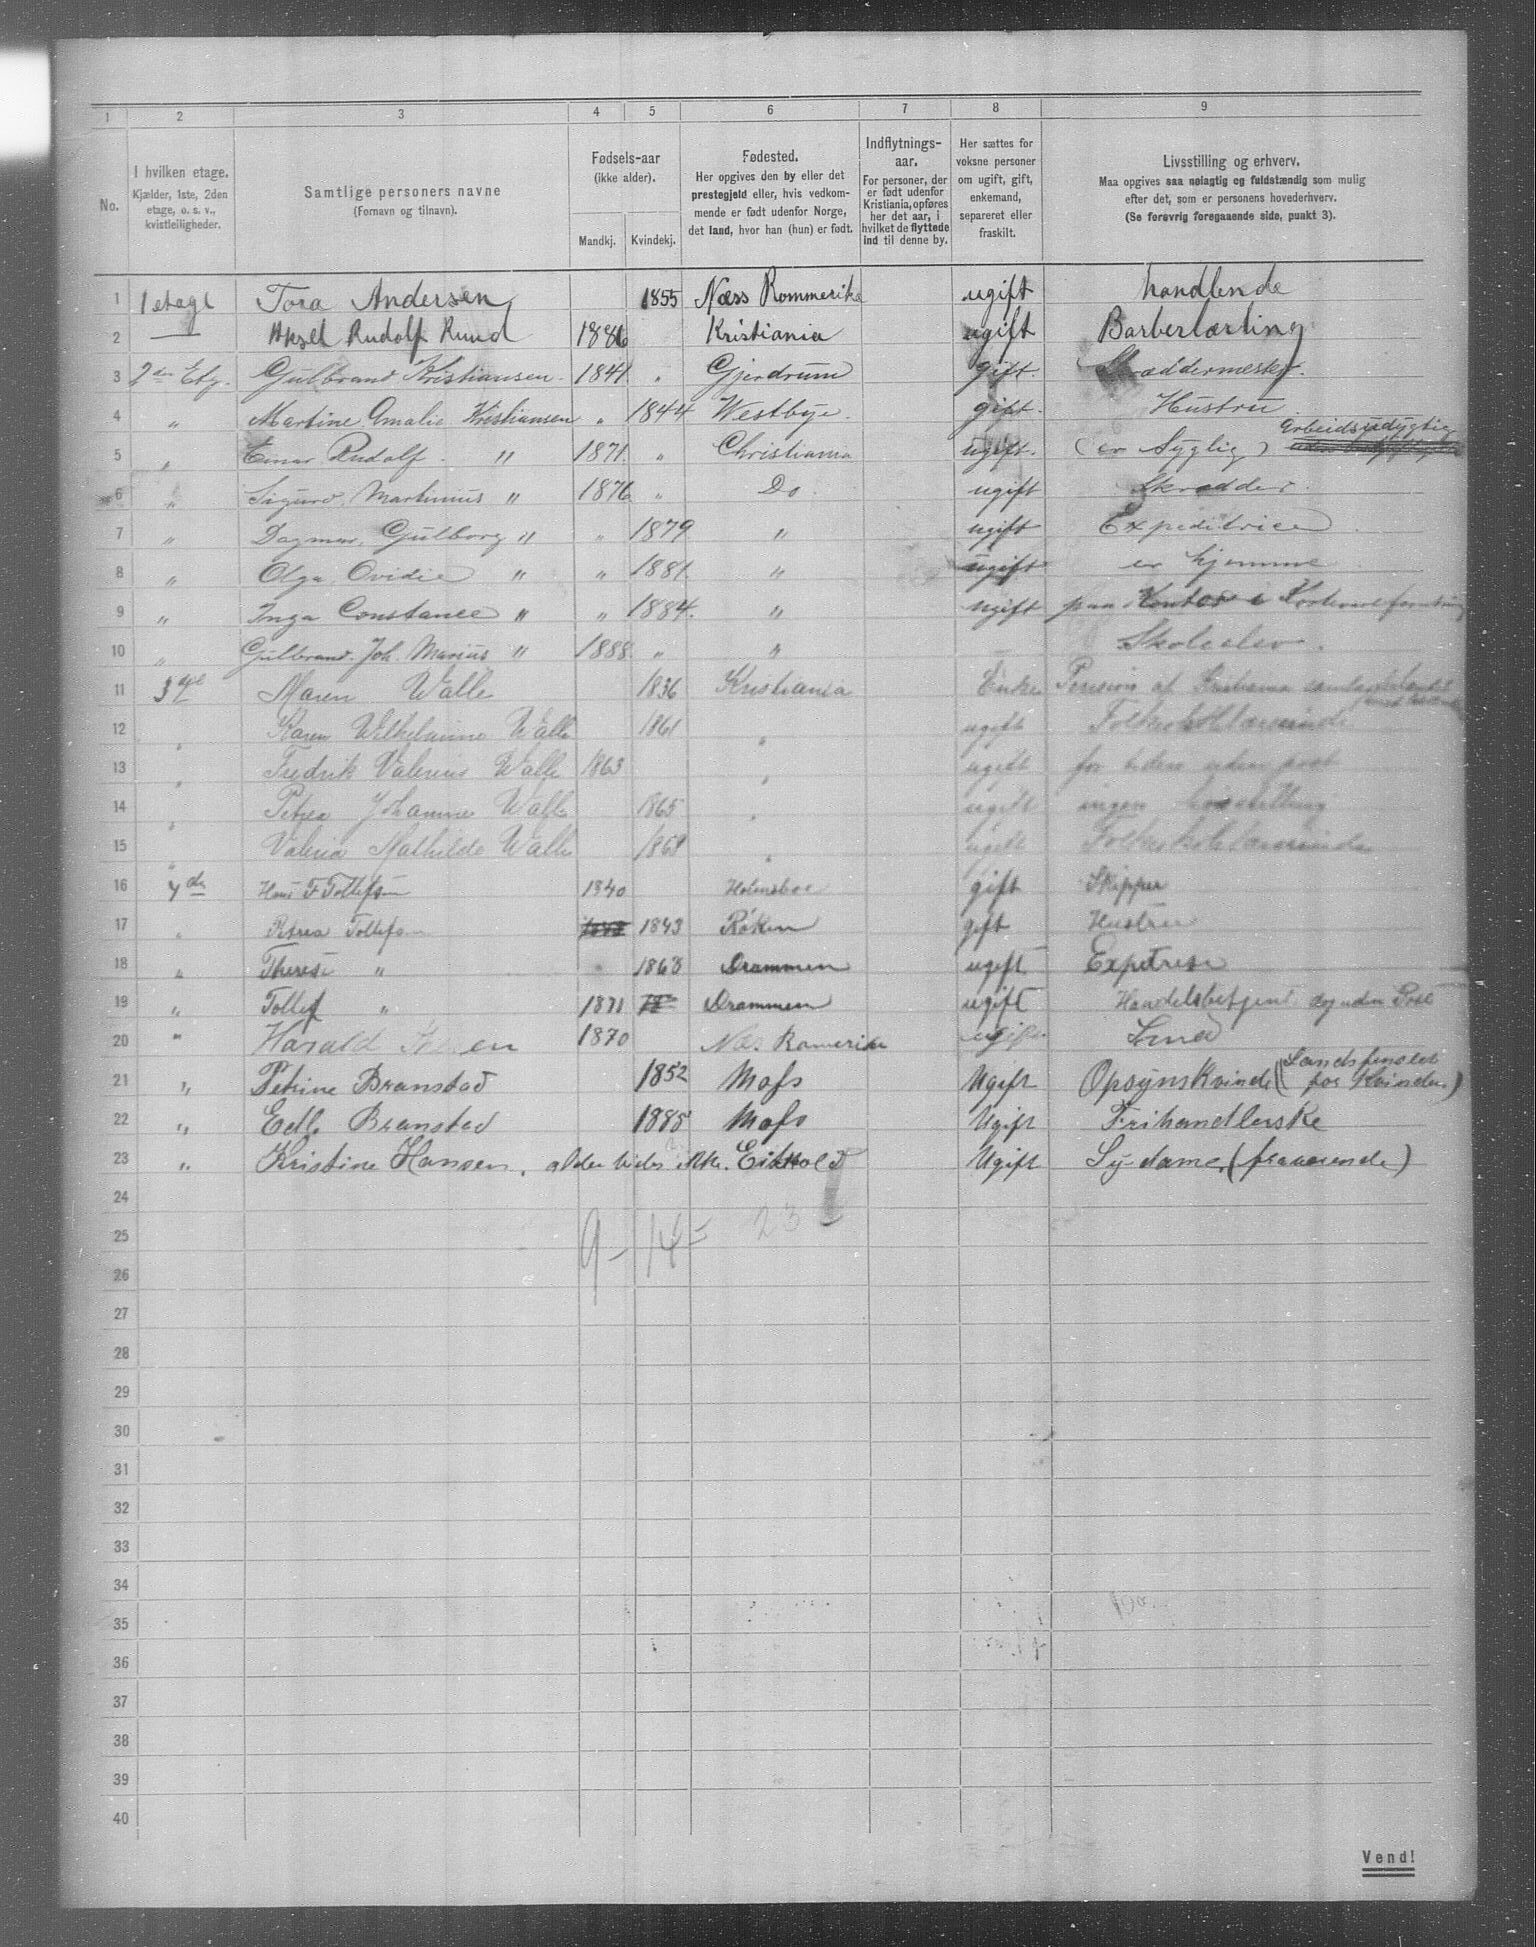 1 2 3 4 5 6 7 8 9
No.
I hvilken etage.
Kjælder, 1ste, 2den
etage, o. s. v.,
kvistleiligheder.
Samtlige personers navne
(Fornavn og tilnavn).
Fødsels-aar
(ikke alder).
Mandkj. Kvindekj.
Fødested.
Her opgives den by eller det
prestegjeld eller, hvis vedkom-
mende er født udenfor Norge,
det land, hvor han (hun) er født.
Indflytnings-
aar.
For personer, der
er født udenfor
Kristiania, opføres
her det aar, i
hvilket de flyttede
ind til denne by.
Her sættes for
voksne personer
om ugift, gift,
enkemand,
separeret eller
fraskilt.
Livsstilling og erhverv.
Maa opgives saa nøiagtig og fuldstændig som mulig
efter det, som er personens hovederhverv.
(Se forøvrig foregaaende side, punkt 3).
1 1 etage Tora Andersen 1855 Næss Rommerike ugift handlende
2 — Aksel Rudolf Ruud 1886 Kristiania ugift Barberlærling
3 2den Etg. Gulbrand Kristiansen 1841 " Gjerdrum gift. Skræddermester.
4 " Martine Amalie Kristiansen " 1844 Westbye. gift. Hustru
5 " Einar Rudolf " 1871. " Christiania ugift. (er Syglig) Arbeidsudygtig
6 " Sigurd Martinius " 1876 " Do ugift Skrædder.
7 " Dagmar Gulborg " " 1879 " ugift Expeditrice
8 " Olga Ovidie " " 1881. " ugift er hjemme
9 " Inga Constance " " 1884. " ugift paa Kontor i
10 " Gulbrand. Joh. Marius " 1888. " " Skoleelev.
11 3die Maren Walle 1836 Kristiania Enke Pension af Kristiania
12 " Karen Wilhelmine Walle 1861 " ugift Folkeskolelærerinde
13 " Fredrik Valerius Walle 1863 " ugift for tiden uden post
14 " Petrea Johanne Walle 1865 " ugift ingen
15 " Valeria Mathilde Walle 1868 " ugift Folkeskolelærerinde
16 4de Hans F Tollefsen 1840 Holmsboe gift Skipper
17 " Petrea Tollefsen 1843 Røken gift Hustru
18 " Therese " 1868 Drammen ugift
19 " Tollef " 1871 Drammen ugift Handelsbetjent uden Post
20 " Harald 1870 Næs Romerike ugift Smed
21 " Petrine Branstad 1852 Moss Ugift Opsynskvinde (Landsfengslet
for Kvinder)
22 " Edl. Branstad 1885 Moss Ugift Frihandlerske
23 " Kristine Hansen, Eidsvold Ugift Sy-dame, (fraværende)
24
25 9 - 14 = 23
26
27
28
29
30
31
32
33
34
35
36
37
38
39
40
Vend!